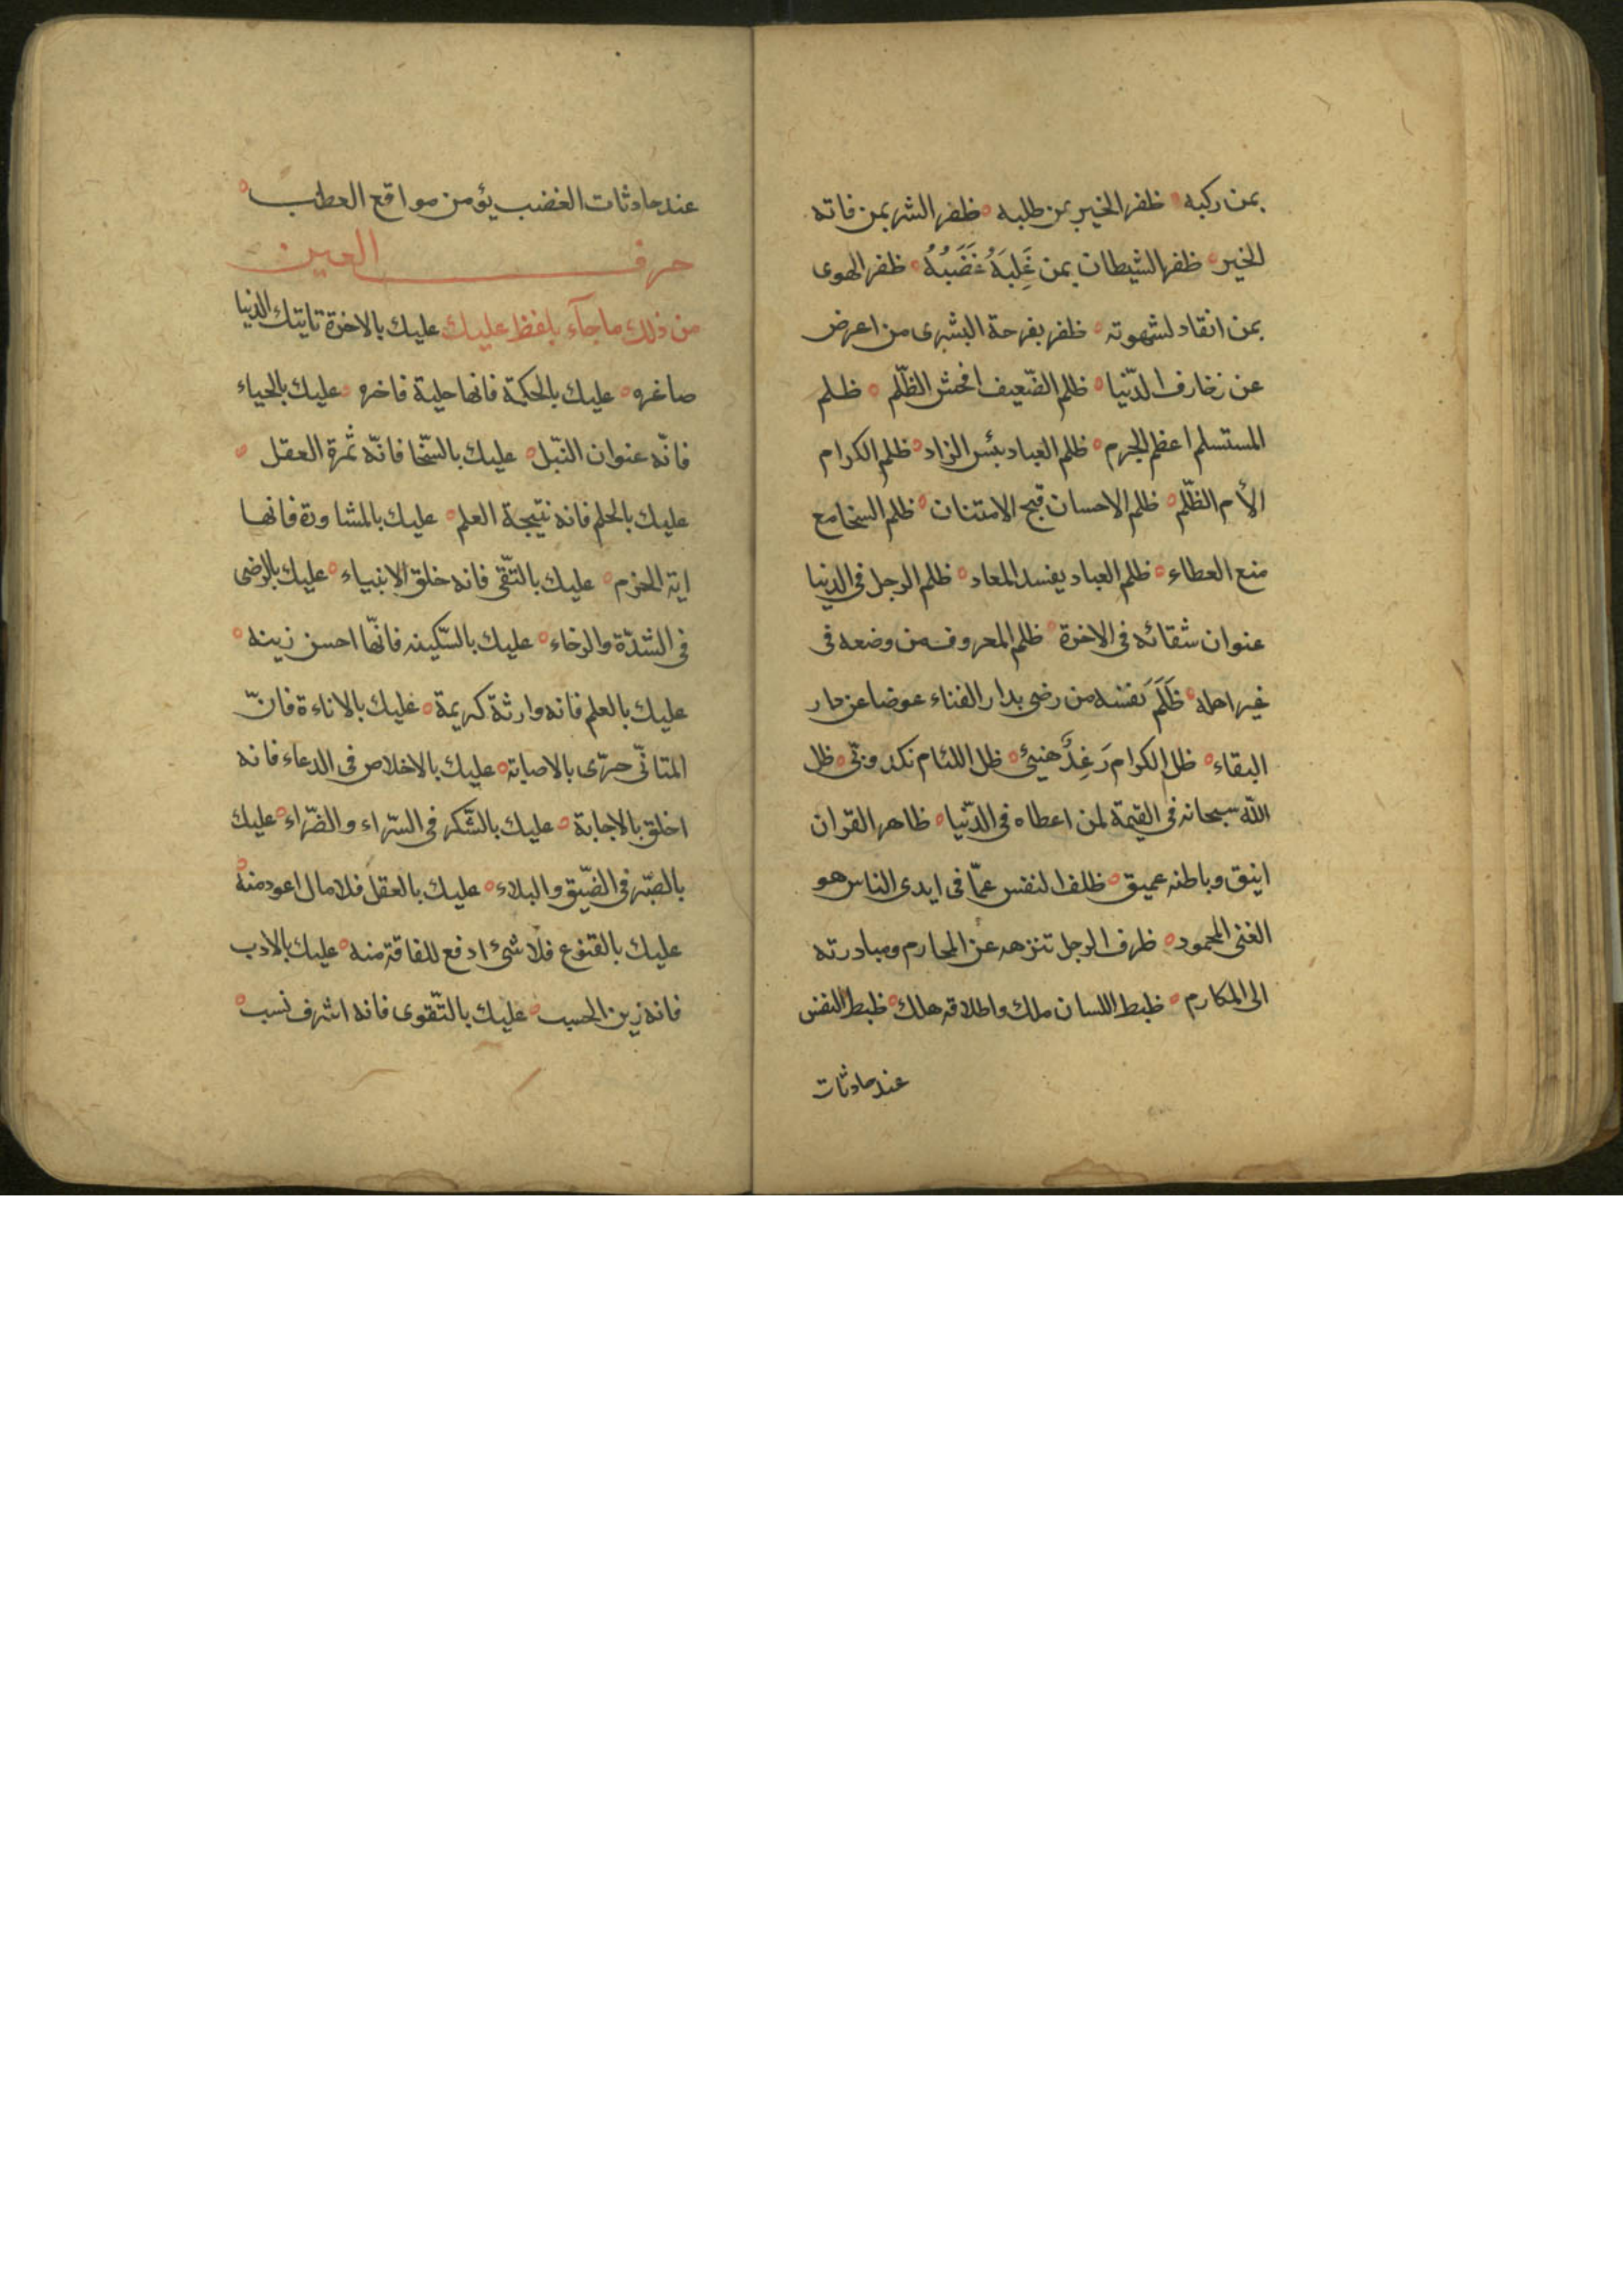 بمن ركبه ظفر الخير بمن طلبه ظفر الشر بمن فاته
الخير ظفر الشيطان بمن غَلِبَهُ غَضَبُهُ ظفر الهوى
بمن انقاد لشهوته ظفر بفرحة البشرى من اعرض
عن زخارف الدّنيا ظلم الضّعيف افحش الظّلم ظلم
المستسلم اعظم الجرم ظلم العباد بئس الزاد ظلم الكرام
الأم الظّلم ظلم الاحسان قبح الامتنان ظلم السخا مع
منع العطاء ظلم العباد يفسد المعاد ظلم الرجل فى الدنيا
عنوان شقائه فى الاخرة ظلم المعروف من وضعه فى
غير اهله ظَلَمَ نفسه من رضى بدار الفناء عوضا عن دار
البقاء ظل الكرام رَغِدٌ هنيئ ظل اللئام نكد وبىّ ظل
الله سبحانه فى القيمة لمن اعطاه فى الدّنيا ظاهر القران
انيق وباطنه عميق ظلف النفس عمّا فى ايدى الناس هو
الغنى المحمود ظرف الرجل تنزهه عن المحارم ومبادرته
الى المكارم ظبط اللسان ملك واطلاقه هلك ظبط النفس
عند حادثات
عند حادثات الغضب يؤمن مواقع العطب
حرف العين
من ذلك ما جآء بلفظ عليك عليك بالاخرة تاتيتك الدنيا
صاغره عليك بالحكمة فانها حلية فاخره عليك بالحياء
فانّه عنوان النبّل عليك بالسّخا فانّه ثمرة العقل
عليك بالحلم فانه نتيجة العلم عليك بالمشاورة فانها
اية الحزم عليك بالتّقى فانه خلق الانبياء عليك بالرضى
فى الشدّة والرخاء عليك بالسّكينه فانّها احسن زينه
عليك بالعلم فانه وارثة كريمة عليك بالاناءة فانّ
المتانّى حرّى بالاصابة عليك بالاخلاص فى الدعاء فانه
اخلق بالاجابة عليك بالشّكر فى السّراء والضّراء عليك
بالصّبر فى الضّيق والبلاء عليك بالعقل فلا مال اعود منه
عليك بالقنوع فلا شئ ادفع للفاقة منه عليك بالادب
فانه زين الحسب عليك بالتّقوى فانه اشرف نسب